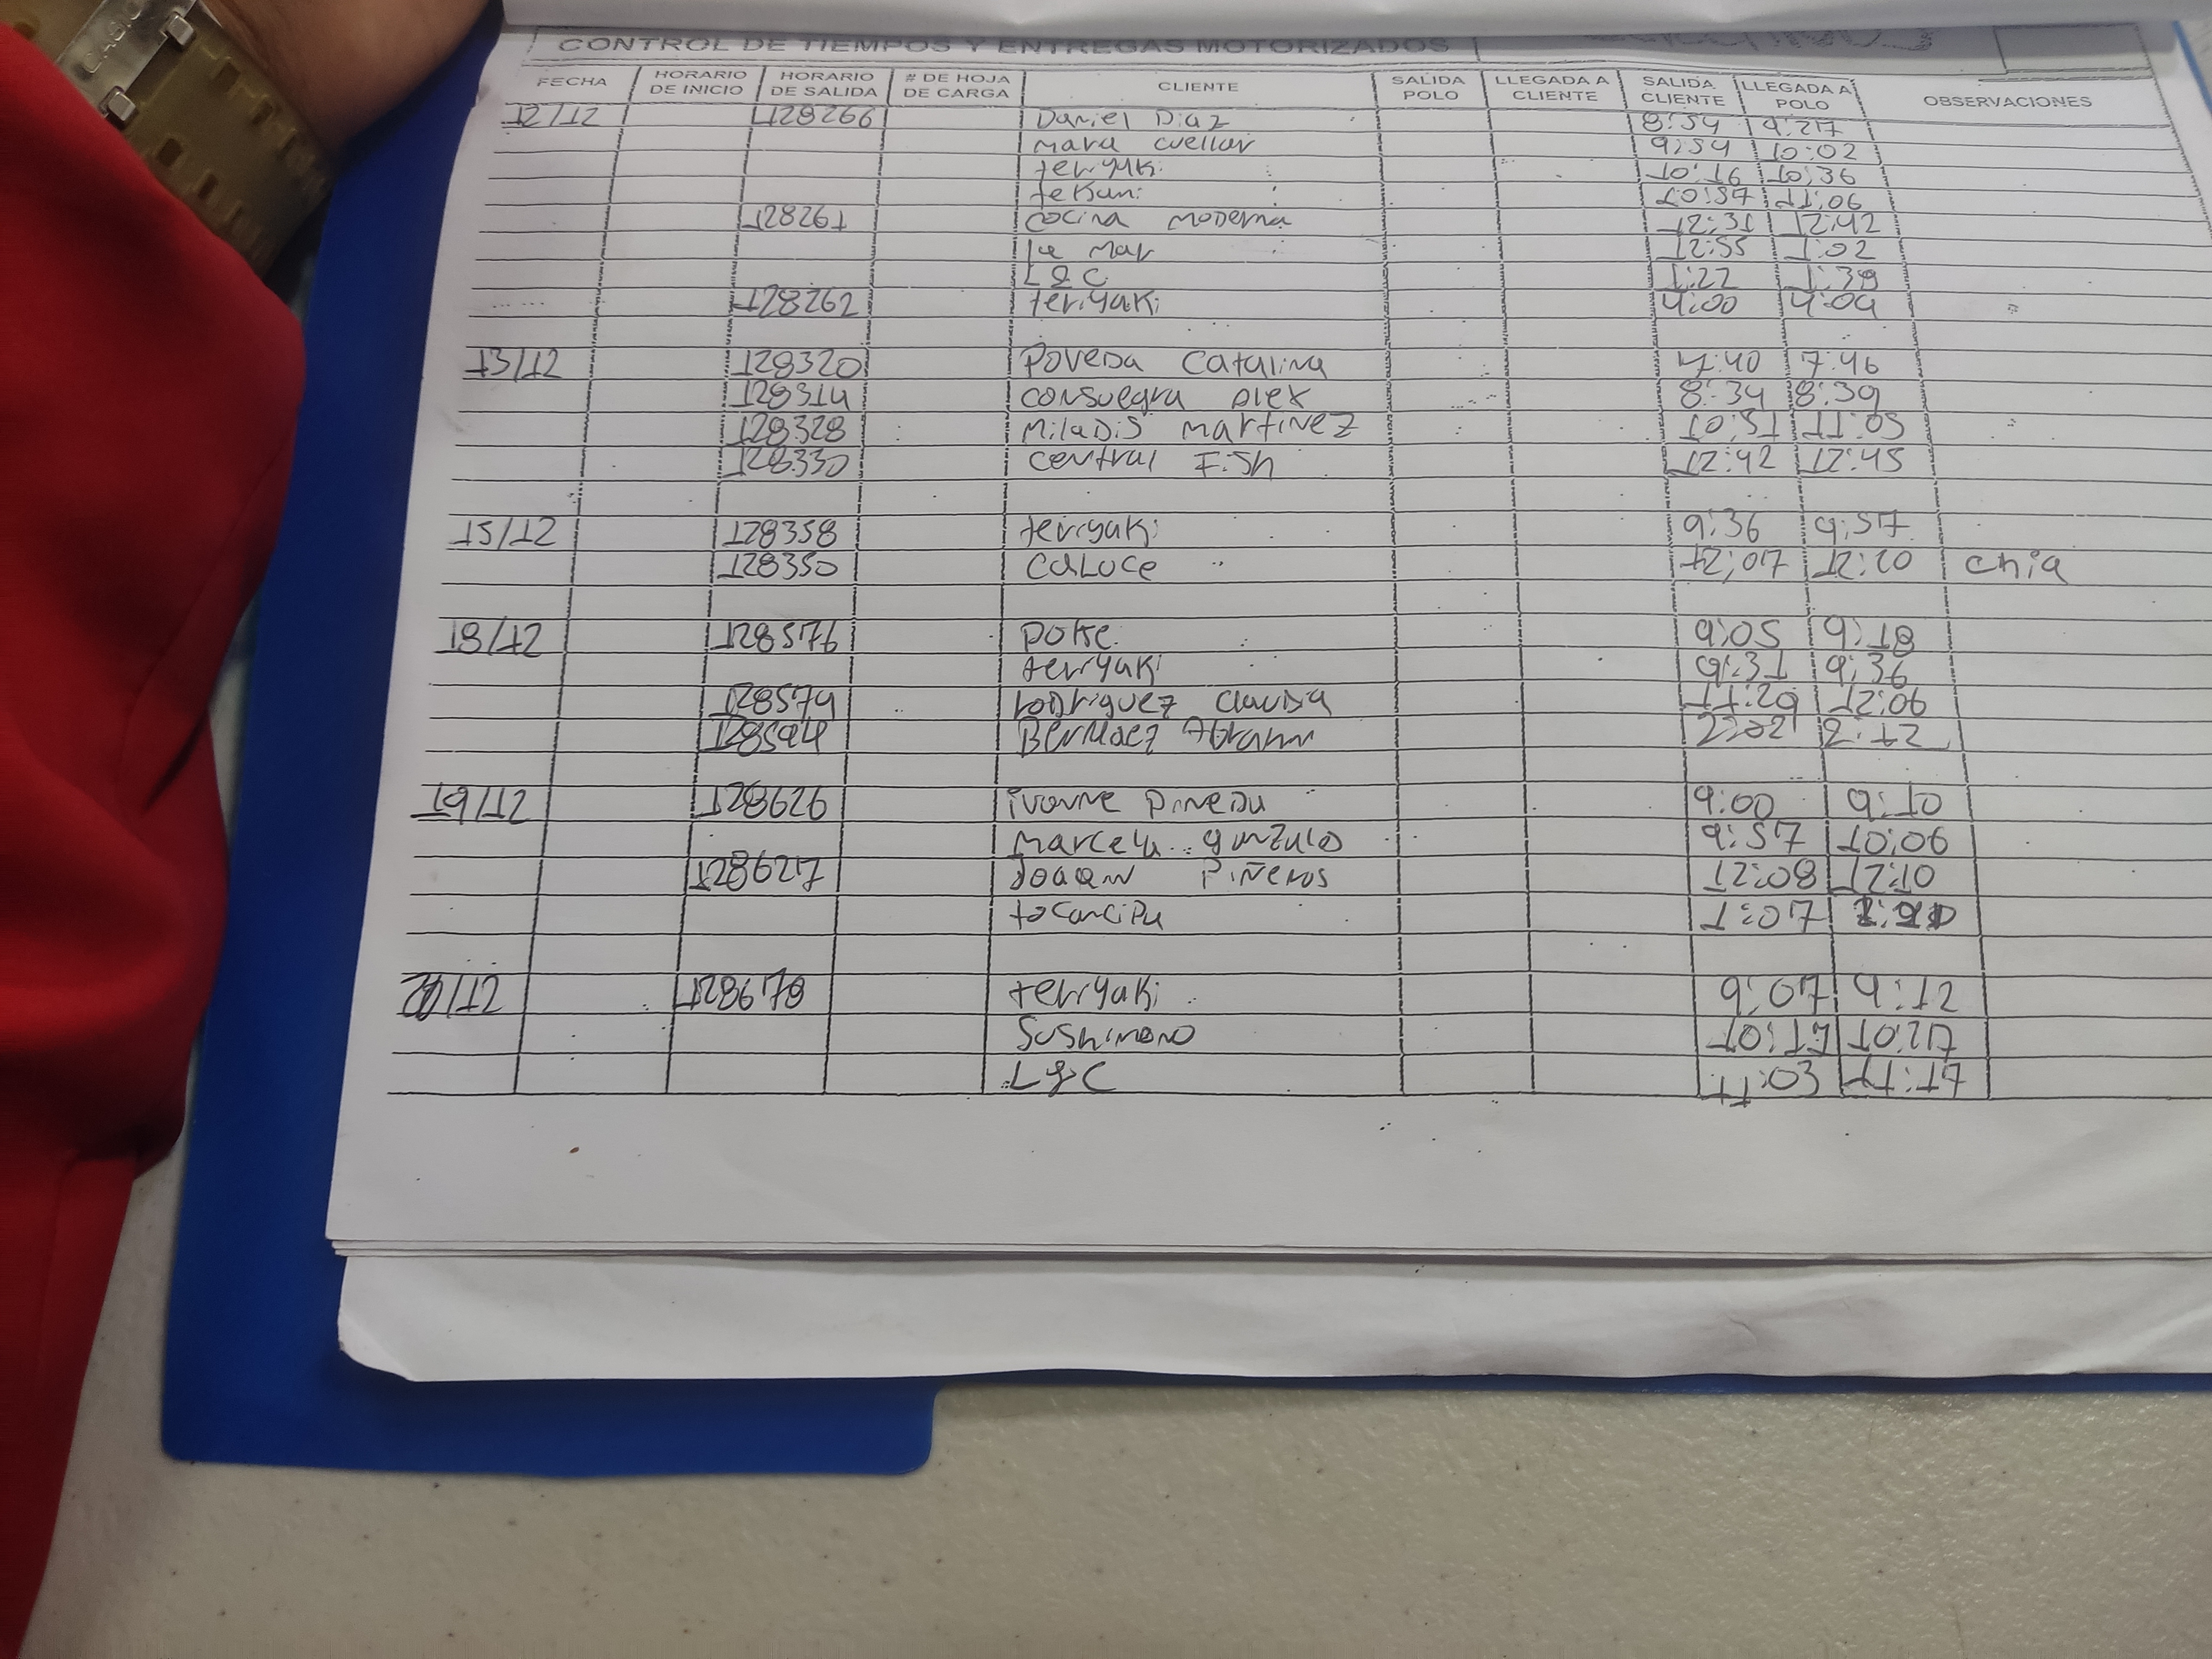 CONTROL DE TIEMPOS Y ENTREGAS MOTORIZADOS
FECHA HORARIO DE INICIO HORARIO DE SALIDA # DE HOJA DE CARGA CLIENTE SALIDA POLO LLEGADA A CLIENTE SALIDA CLIENTE LLEGADA A POLO OBSERVACIONES
12/12 128266 Daniel Diaz 8:54 9:27
mara cuellar 9:54 10:02
teriyaki 10:16 10:36
tekuni 10:57 11:06
128261 cocina moderna 12:31 12:42
la mar 12:55 1:02
L&C 1:22 1:39
128262 teriyaki 4:00 4:09
13/12 128320 Poveda Catalina 7:40 7:46
128314 consuegra Dlex 8:34 8:39
128328 Miladis martinez 10:51 11:05
128330 central Fish 12:42 12:45
15/12 128358 teriyaki 9:36 9:57
128350 caluce 12:07 12:20 chia
18/12 128576 Poke 9:05 9:18
teriyaki 9:31 9:36
128574 rodriguez claudia 11:29 12:06
128594 2:02 2:12
19/12 128626 ivonne Pineda 9:00 9:10
Marcela gonzalo 9:57 10:06
128627 Joaqin Piñeros 12:08 12:10
tocancipa 1:07
/12 128678 teriyaki 9:07 9:12
Sushimono 10:17 10:27
L&C 11:03 11:17